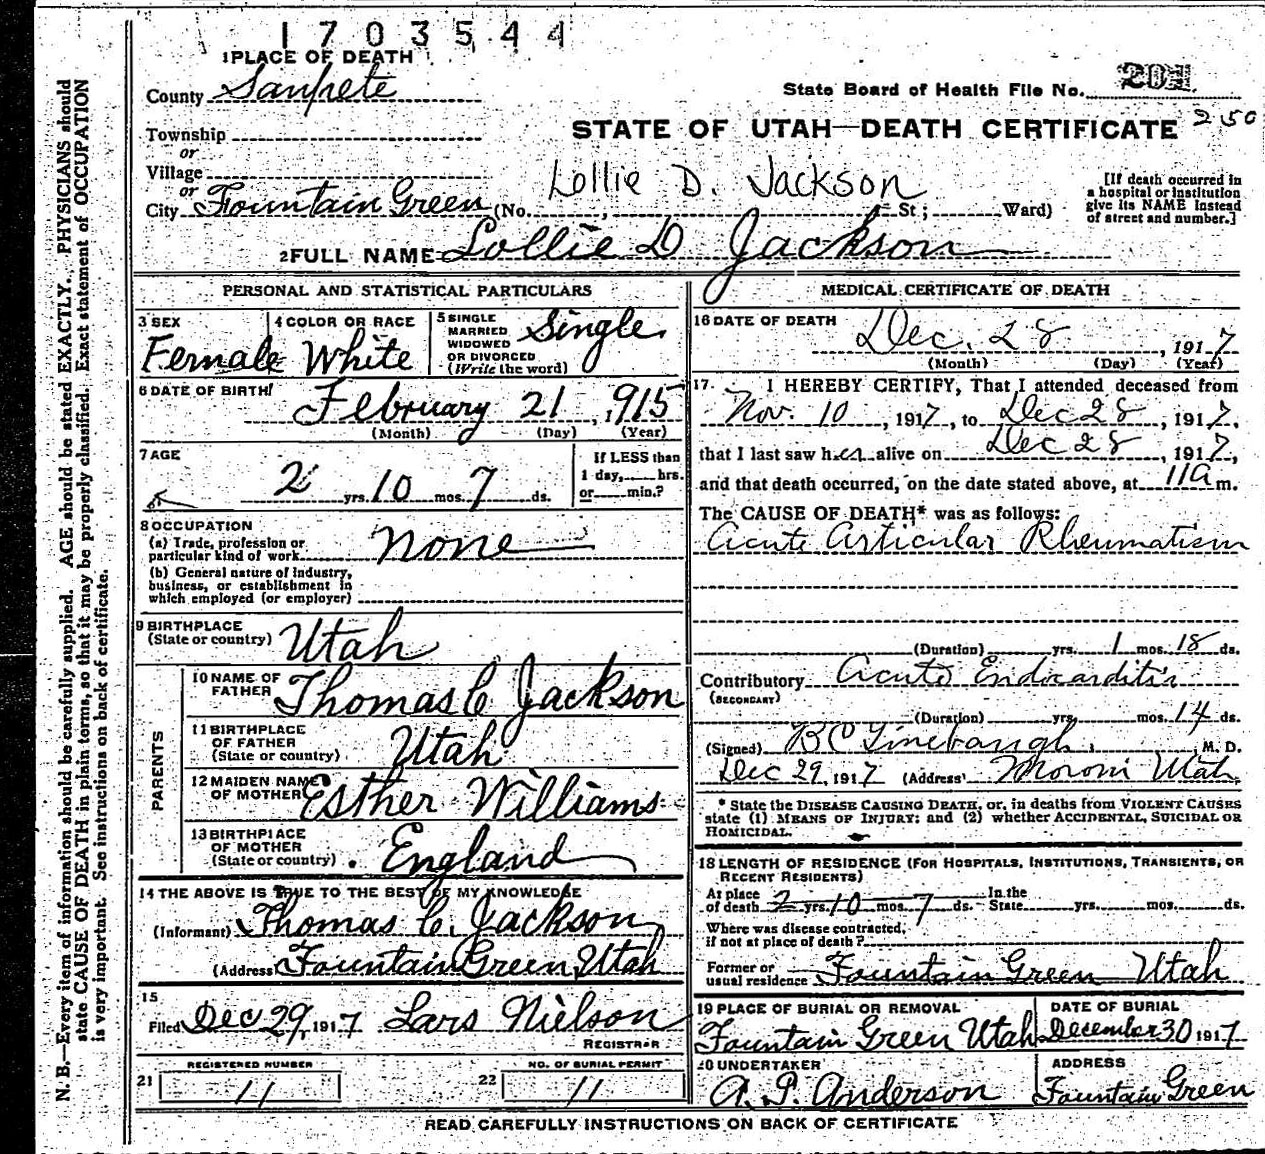 1703544
1 PLACE OF DEATH
County Sanpete
State Board of Health File No. 201
250
Township
or
Village
or
City Fountain Green (No. , St; Ward)
STATE OF UTAH—DEATH CERTIFICATE
Lollie D. Jackson
[If death occurred in
a hospital or institution
give its NAME instead
of street and number.]
2 FULL NAME Lollie D Jackson
PERSONAL AND STATISTICAL PARTICULARS
3 SEX
Female
4 COLOR OR RACE
White
5 SINGLE
MARRIED
WIDOWED
OR DIVORCED
(Write the word)
Single
6 DATE OF BIRTH
February 21 , 1915
(Month) (Day) (Year)
7 AGE
2 yrs. 10 mos. 7 ds.
If LESS than
1 day, hrs.
or min.?
8 OCCUPATION
(a) Trade, profession or
particular kind of work None
(b) General nature of industry,
business, or establishment in
which employed (or employer)
9 BIRTHPLACE
(State or country) Utah
PARENTS
10 NAME OF
FATHER Thomas C Jackson
11 BIRTHPLACE
OF FATHER
(State or country) Utah
12 MAIDEN NAME
OF MOTHER Esther Williams
13 BIRTHPLACE
OF MOTHER
(State or country) England
14 THE ABOVE IS TRUE TO THE BEST OF MY KNOWLEDGE
(Informant) Thomas C. Jackson
(Address) Fountain Green, Utah
15
Filed Dec 29, 1917 Lars Nielson
REGISTRAR
REGISTERED NUMBER
21 11
NO. OF BURIAL PERMIT
22 11
MEDICAL CERTIFICATE OF DEATH
16 DATE OF DEATH
Dec. 28 , 1917
(Month) (Day) (Year)
17. I HEREBY CERTIFY, That I attended deceased from
Nov. 10 , 1917, to Dec 28 , 1917,
that I last saw her alive on Dec 28 , 1917,
and that death occurred, on the date stated above, at 11a m.
The CAUSE OF DEATH* was as follows:
Acute Articular Rheumatism
(Duration) yrs. 1 mos. 18 ds.
Contributory Acute Endocarditis
(SECONDARY)
(Duration) yrs. mos. 14 ds.
(Signed) B C Linebaugh , M. D.
Dec 29, 1917 (Address) Moroni Utah
* State the DISEASE CAUSING DEATH, or, in deaths from VIOLENT CAUSES
state (1) MEANS OF INJURY; and (2) whether ACCIDENTAL, SUICIDAL OR
HOMICIDAL.
18 LENGTH OF RESIDENCE (FOR HOSPITALS, INSTITUTIONS, TRANSIENTS, OR
RECENT RESIDENTS)
At place
of death 2 yrs. 10 mos. 7 ds.
In the
State yrs. mos. ds.
Where was disease contracted,
if not at place of death?
Former or
usual residence Fountain Green Utah
19 PLACE OF BURIAL OR REMOVAL
Fountain Green Utah
DATE OF BURIAL
December 30 1917
20 UNDERTAKER
A. P. Anderson
ADDRESS
Fountain Green
READ CAREFULLY INSTRUCTIONS ON BACK OF CERTIFICATE
N. B.—Every item of information should be carefully supplied. AGE should be stated EXACTLY. PHYSICIANS should
state CAUSE OF DEATH in plain terms, so that it may be properly classified. Exact statement of OCCUPATION
is very important. See instructions on back of certificate.